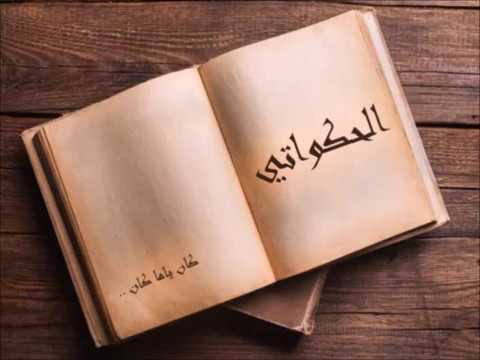 الحكواتي
كان ياما كان ..